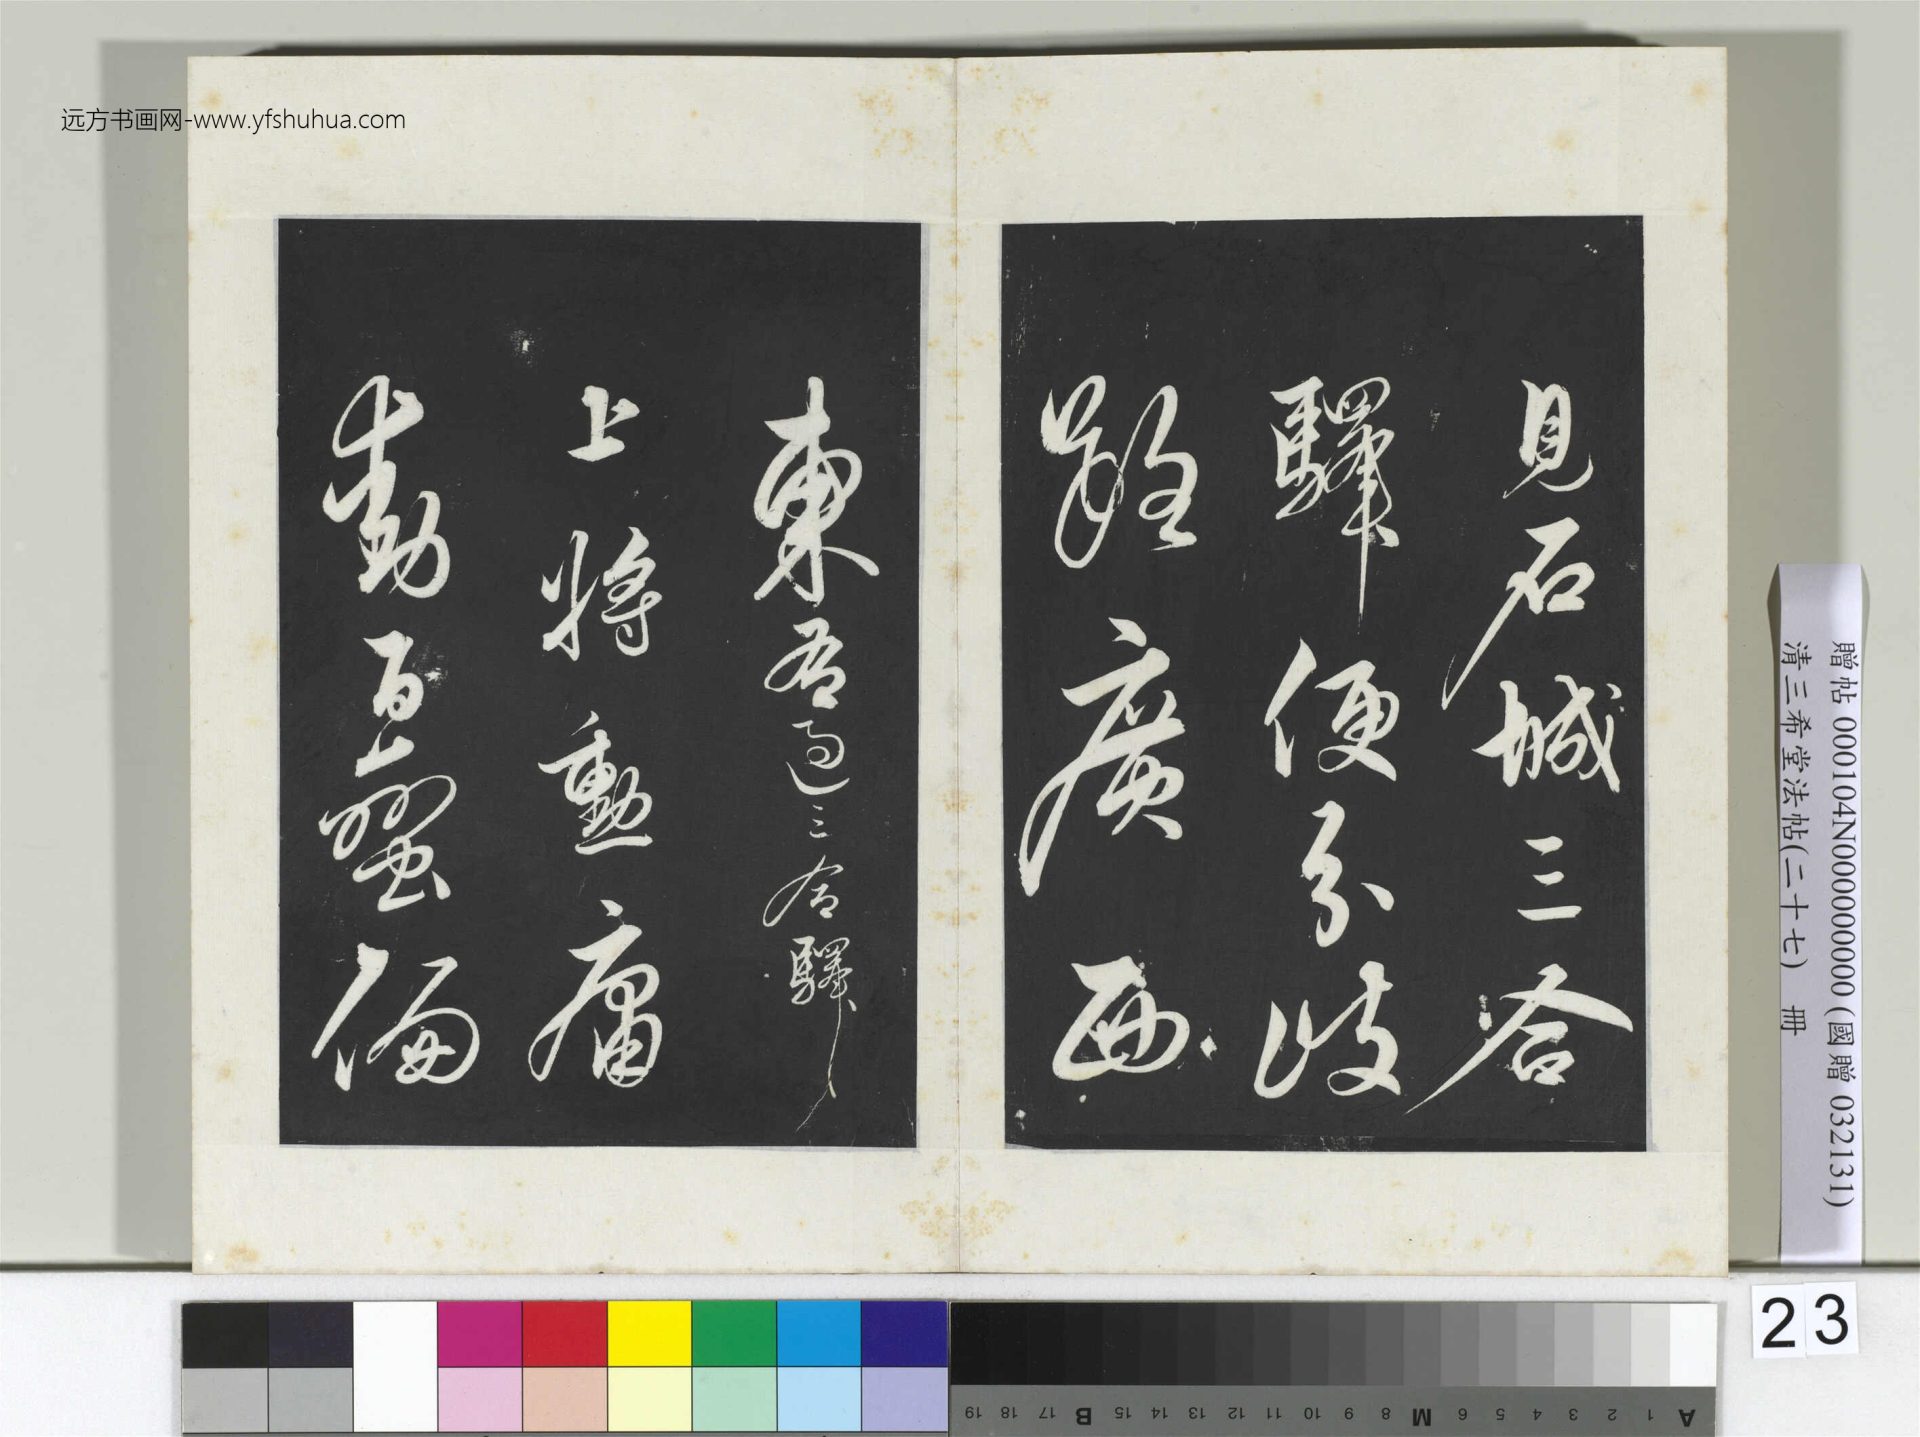 远方书画网-www.yfshuhua.com
見石城三合
驛便分歧
路廣西
東 右過三合驛
上將勳庸
動百蠻偏
贈帖 000104N000000000 (國贈 032131)
清三希堂法帖(二十七) 冊
23
A 1 2 3 4 5 6 M 8 9 10 11 12 13 14 15 B 17 18 19